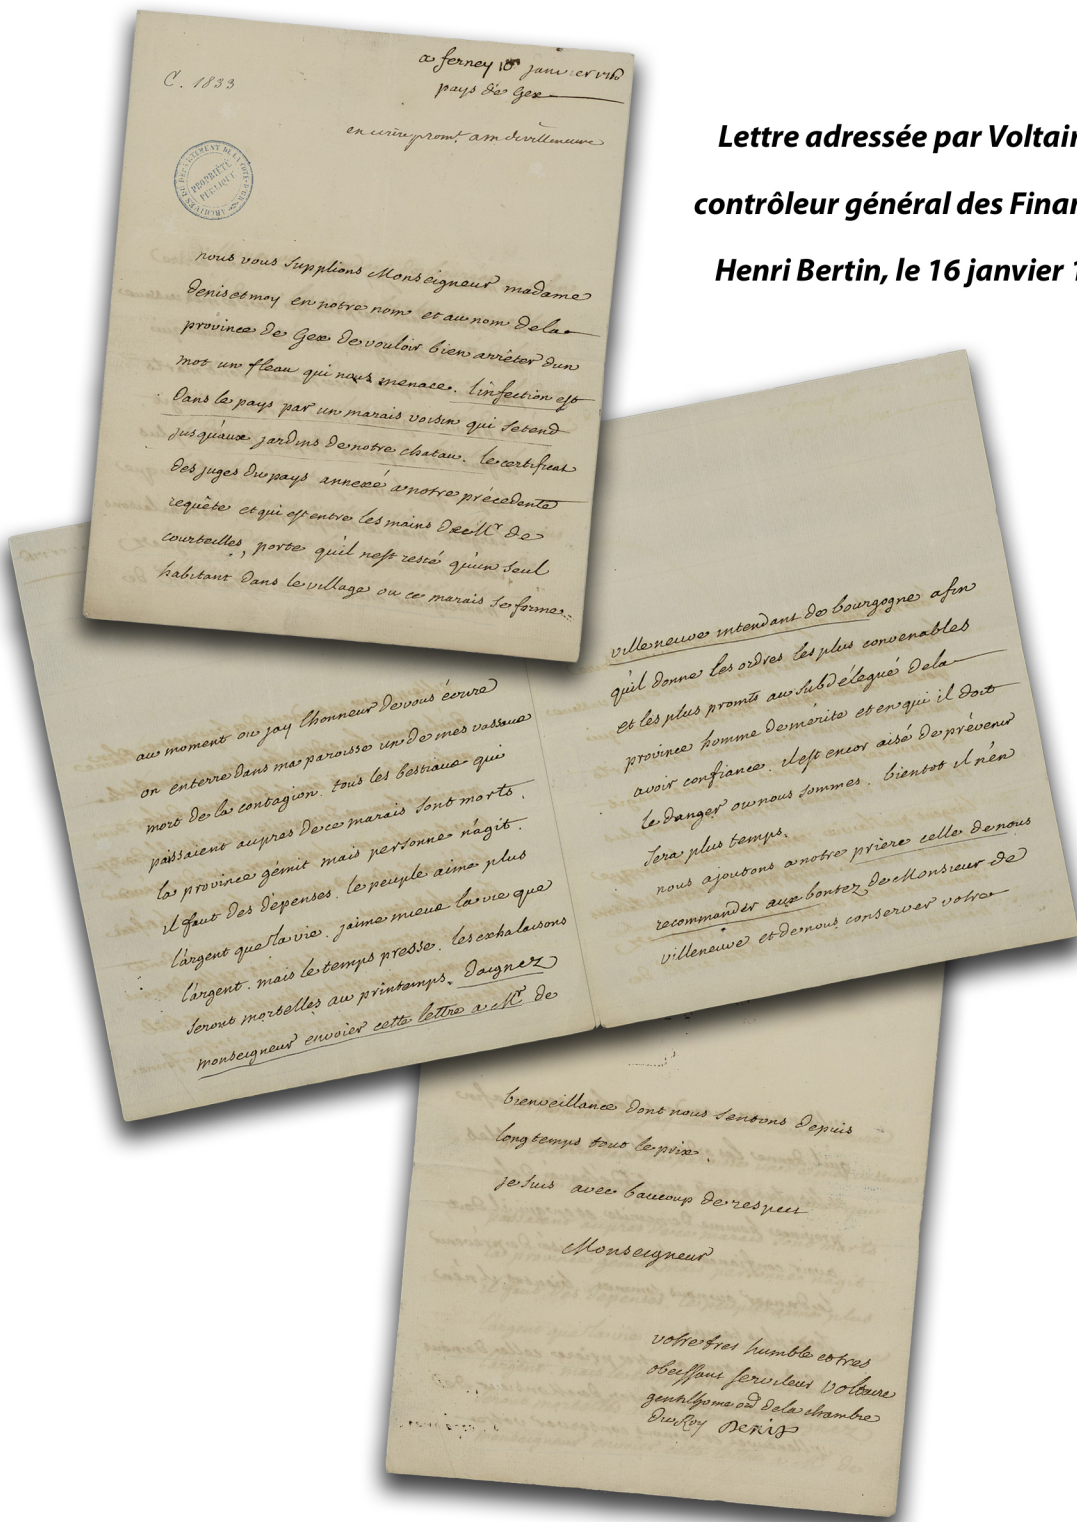 C. 1833
a ferney 16 janvier 1760
pays de Gex
en écrire promt. a m de villeneuve
ARCHIVES DU DÉPARTEMENT DE LA CÔTE-D'OR
PROPRIÉTÉ PUBLIQUE
nous vous supplions Monseigneur madame
denis et moy en notre nom et au nom de la
province de Gex de vouloir bien arrêter dun
mot un fleau qui nous menace. linfection est
dans le pays par un marais voisin qui setend
jusquaux jardins de notre chatau. le certificat
des juges du pays annexé a notre précédente
requête et qui est entre les mains de Mr de
courteilles, porte quil nest resté quun seul
habitant dans le village ou ce marais se forme.
au moment ou jay lhonneur de vous écrire
on enterre dans ma paroisse un de mes vassaux
mort de la contagion. tous les bestiaux qui
paissaient aupres de ce marais sont morts.
la province gémit mais personne nagit.
il faut des dépenses. le peuple aime plus
largent que la vie. jaime mieux la vie que
largent. mais le temps presse. les exhalaisons
seront mortelles au printemps. daignez
monseigneur envoier cette lettre a Mr de
villeneuve intendant de bourgogne afin
quil donne les ordres les plus convenables
et les plus promts au subdélégué de la
province homme de mérite et en qui il doit
avoir confiance. il est encor aisé de prévenir
le danger ou nous sommes. bientot il nen
sera plus temps.
nous ajoutons a notre priere celle de nous
recommander aux bontez de Monsieur de
villeneuve et de nous conserver votre
bienveillance dont nous sentons depuis
longtemps tout le prix.
je suis avec baucoup de respect
Monseigneur
votre tres humble et tres
obeissant serviteur Voltaire
gentilhome ord de la chambre
du Roy Denis
Lettre adressée par Voltair
contrôleur général des Finan
Henri Bertin, le 16 janvier 1